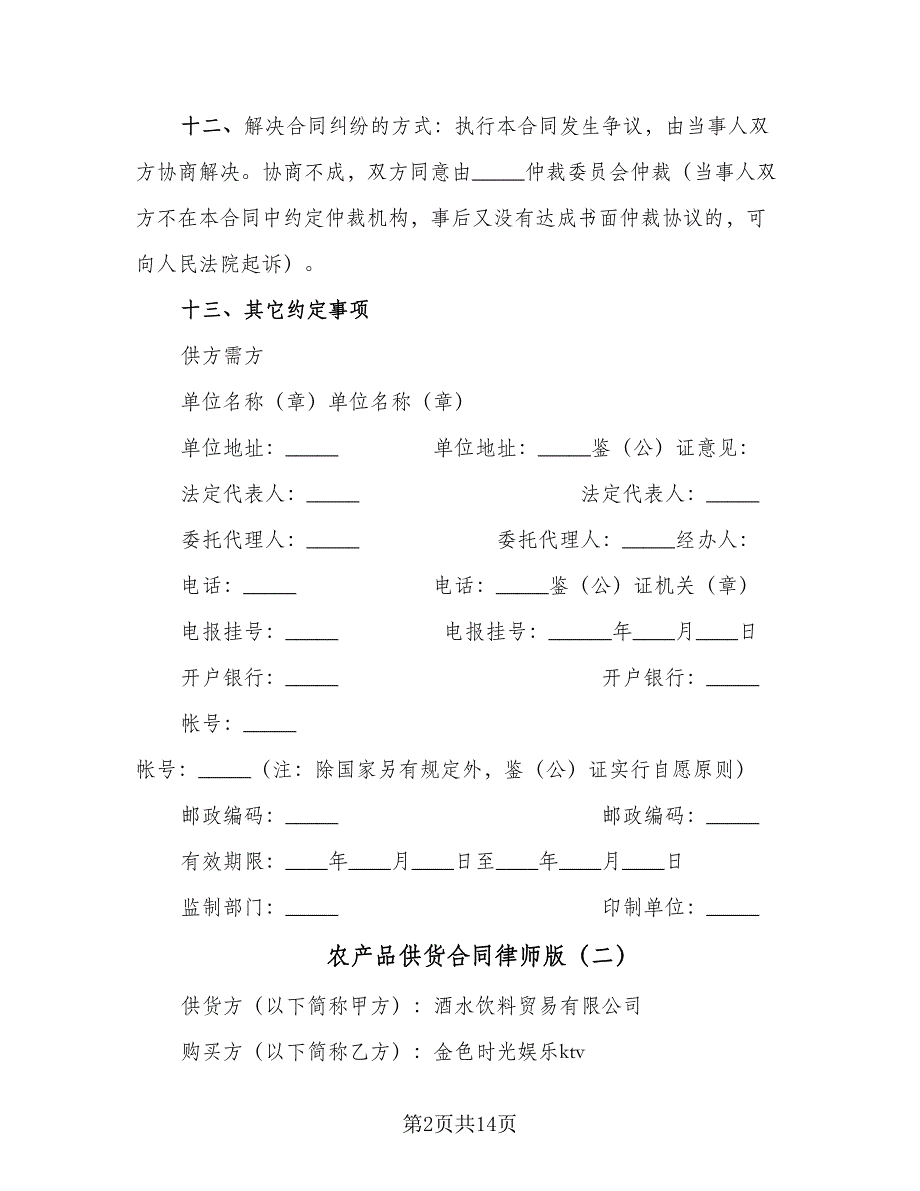 十二、解决合同纠纷的方式：执行本合同发生争议，由当事人双
方协商解决。协商不成，双方同意由_____仲裁委员会仲裁（当事人双
方不在本合同中约定仲裁机构，事后又没有达成书面仲裁协议的，可
向人民法院起诉）。
十三、其它约定事项
供方需方
单位名称（章）单位名称（章）
单位地址：_____ 单位地址：_____鉴（公）证意见：
法定代表人：_____ 法定代表人：_____
委托代理人：_____ 委托代理人：_____经办人：
电话：_____ 电话：_____鉴（公）证机关（章）
电报挂号：_____ 电报挂号：______年____月____日
开户银行：_____ 开户银行：_____
帐号：_____
帐号：_____（注：除国家另有规定外，鉴（公）证实行自愿原则）
邮政编码：_____ 邮政编码：_____
有效期限：____年____月____日至____年____月____日
监制部门：_____ 印制单位：_____
农产品供货合同律师版（二）
供货方（以下简称甲方）：酒水饮料贸易有限公司
购买方（以下简称乙方）：金色时光娱乐ktv
第2页共14页